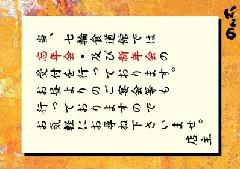 当、七輪食道館では
忘年会・及び新年会の
受付を行っております。
お昼よりのご宴会等も
行っておりますので
お気軽にお尋ね下さいませ。
店主